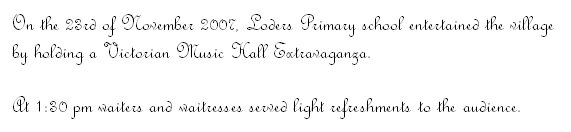 On the 23rd of November 2007, Loders Primary school entertained the village
by holding a Victorian Music Hall Extravaganza.
At 1:30 pm waiters and waitresses served light refreshments to the audience.